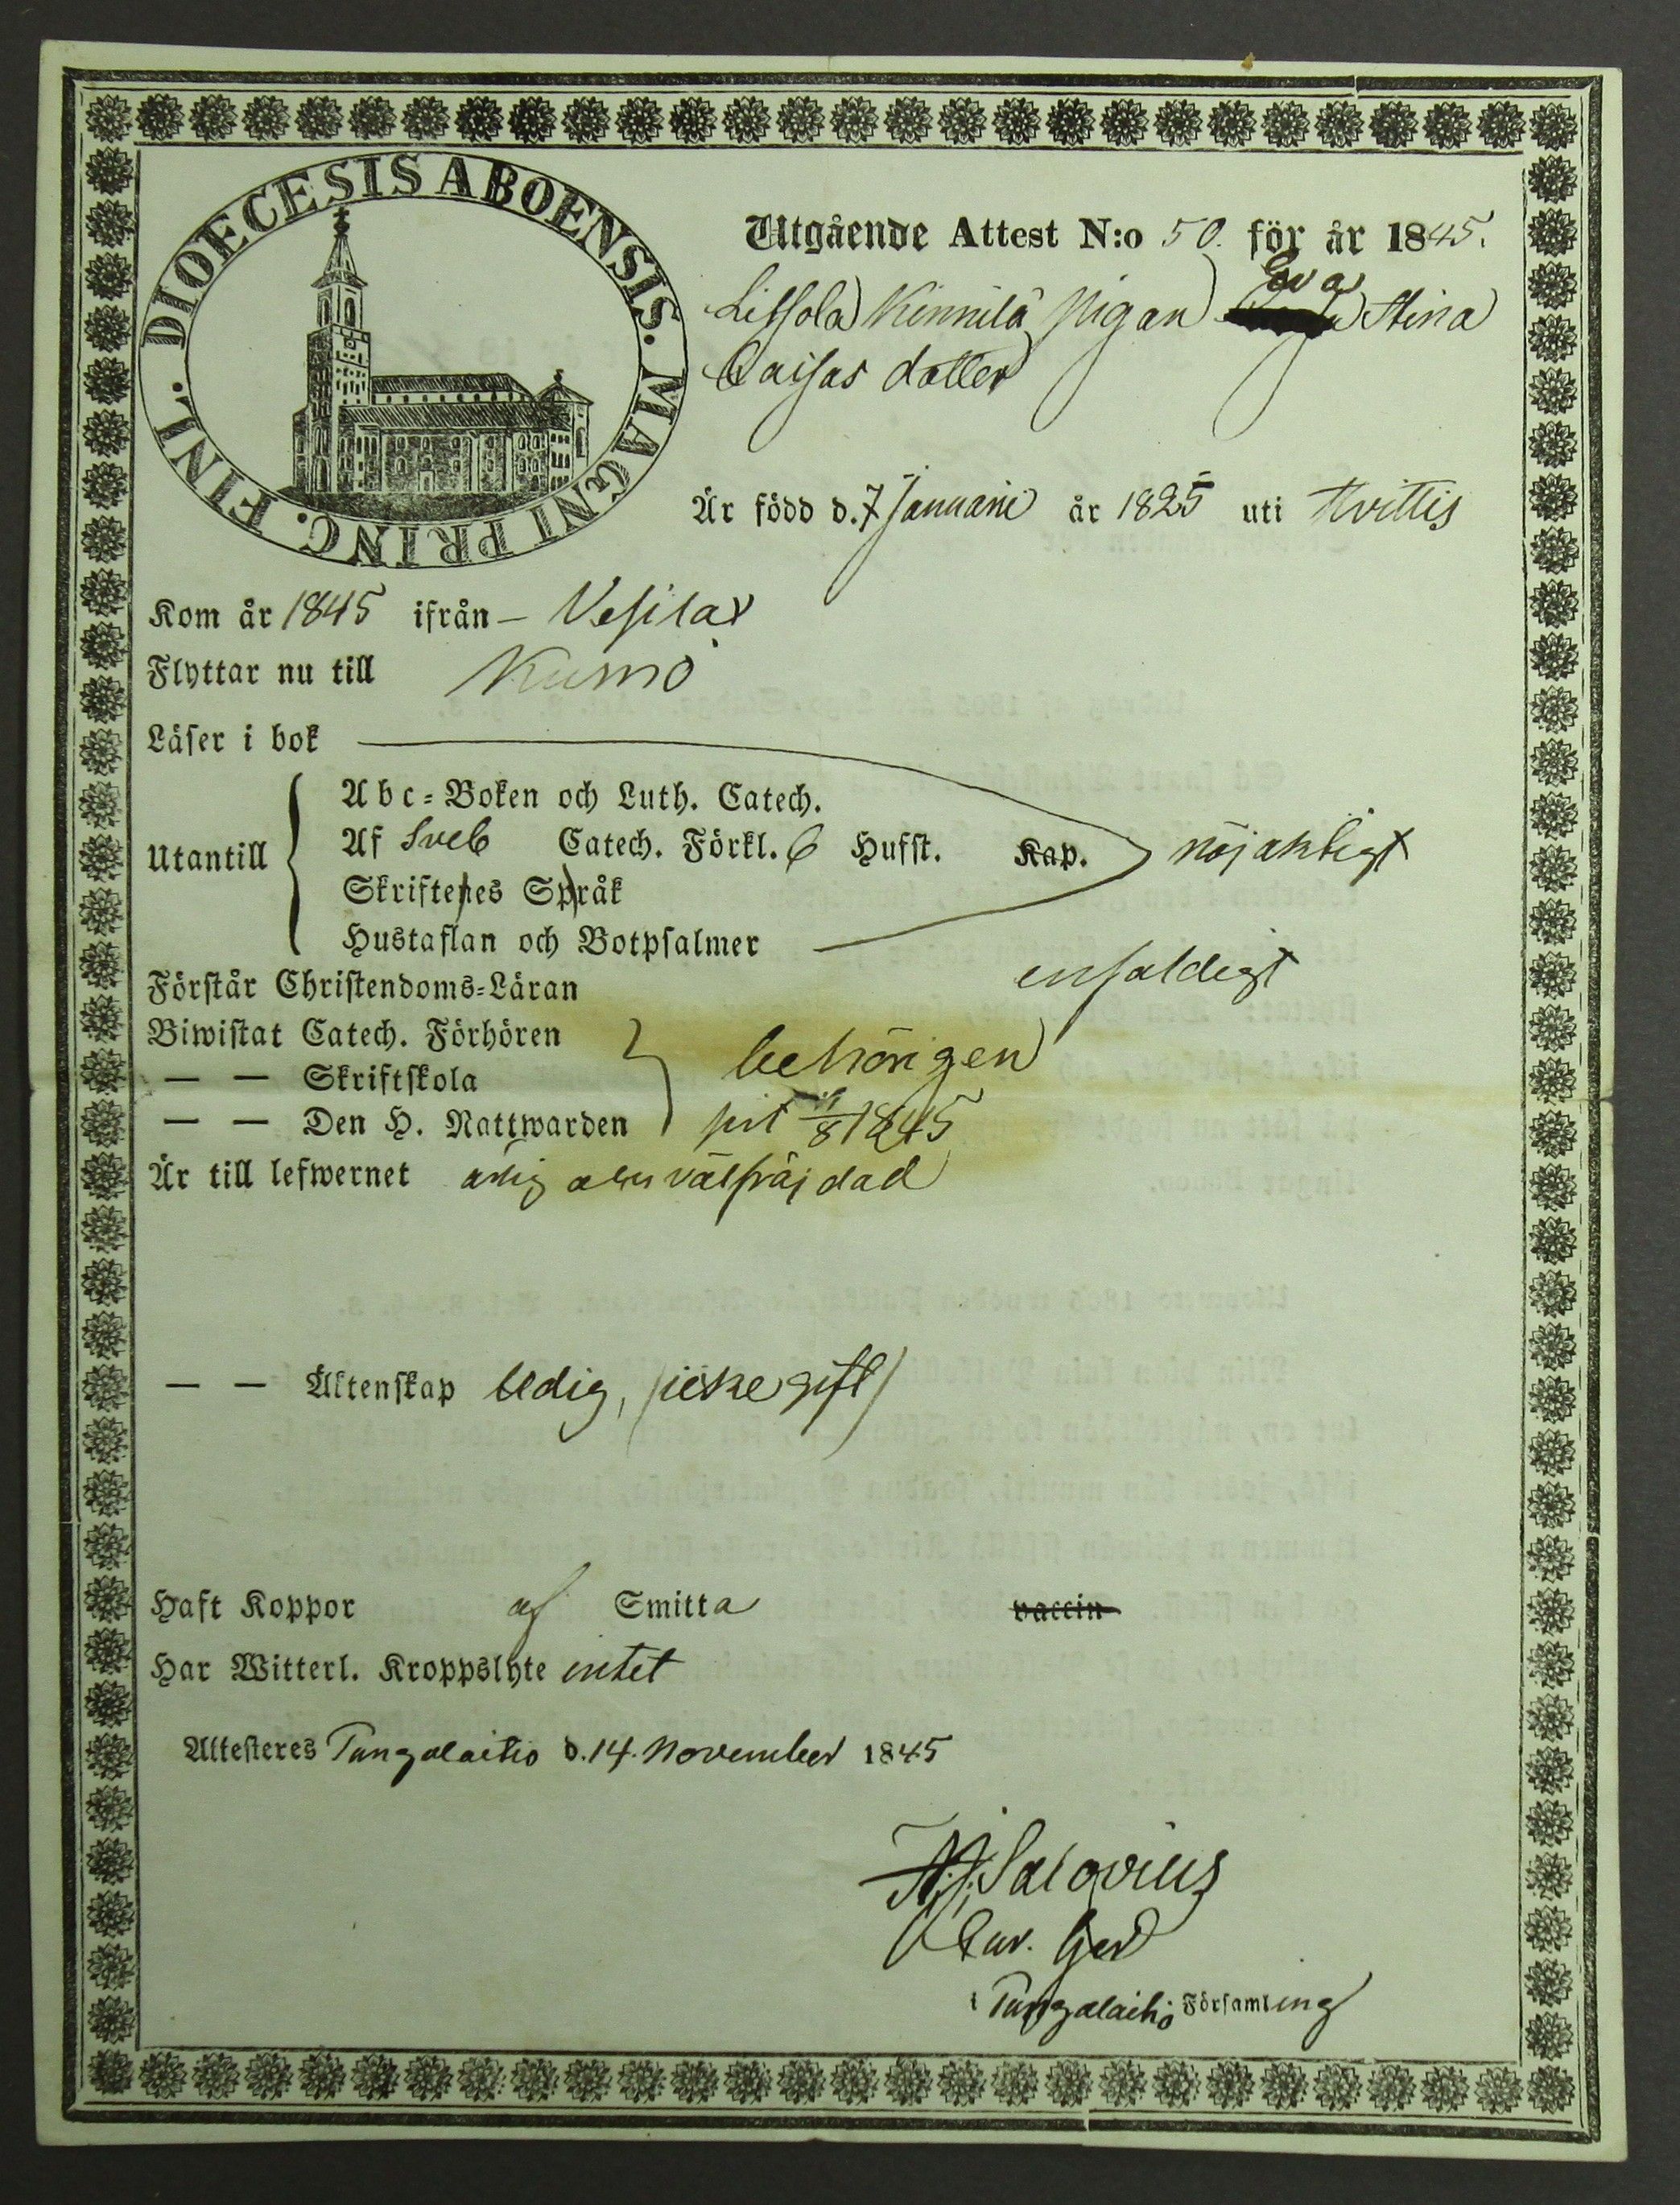 DIOECESIS ABOENSIS. MAGNI PRINC. FINL.
Utgående Attest N:o 50. för år 1845.
Eva
Lissola Kinnilä pigan Stina
Caisas dotter
Är född d. 7 Januarii år 1825 uti Hvittis
Kom år 1845 ifrån – Vesilax
Flyttar nu till Kumo
Läser i bok
Utantill
Abc-Boken och Luth. Catech.
Af Sveb Catech. Förkl. 6 Hufst. Kap. nöjaktigt
Skriftenes Språk
Hustaflan och Botpsalmer
Förstår Christendoms-Läran enfaldigt
Biwistat Catech. Förhören
— — Skriftskola behörigen
— — Den H. Nattwarden sist 1845
Är till lefwernet ärlig välfräjdad
— — Äktenskap ledig, (icke gift)
Haft Koppor af Smitta vaccin
Har Witterl. Kroppslyte intet
Attesteres Pungalaitio d. 14. November 1845
Salovius
i Pungalaitio Församling